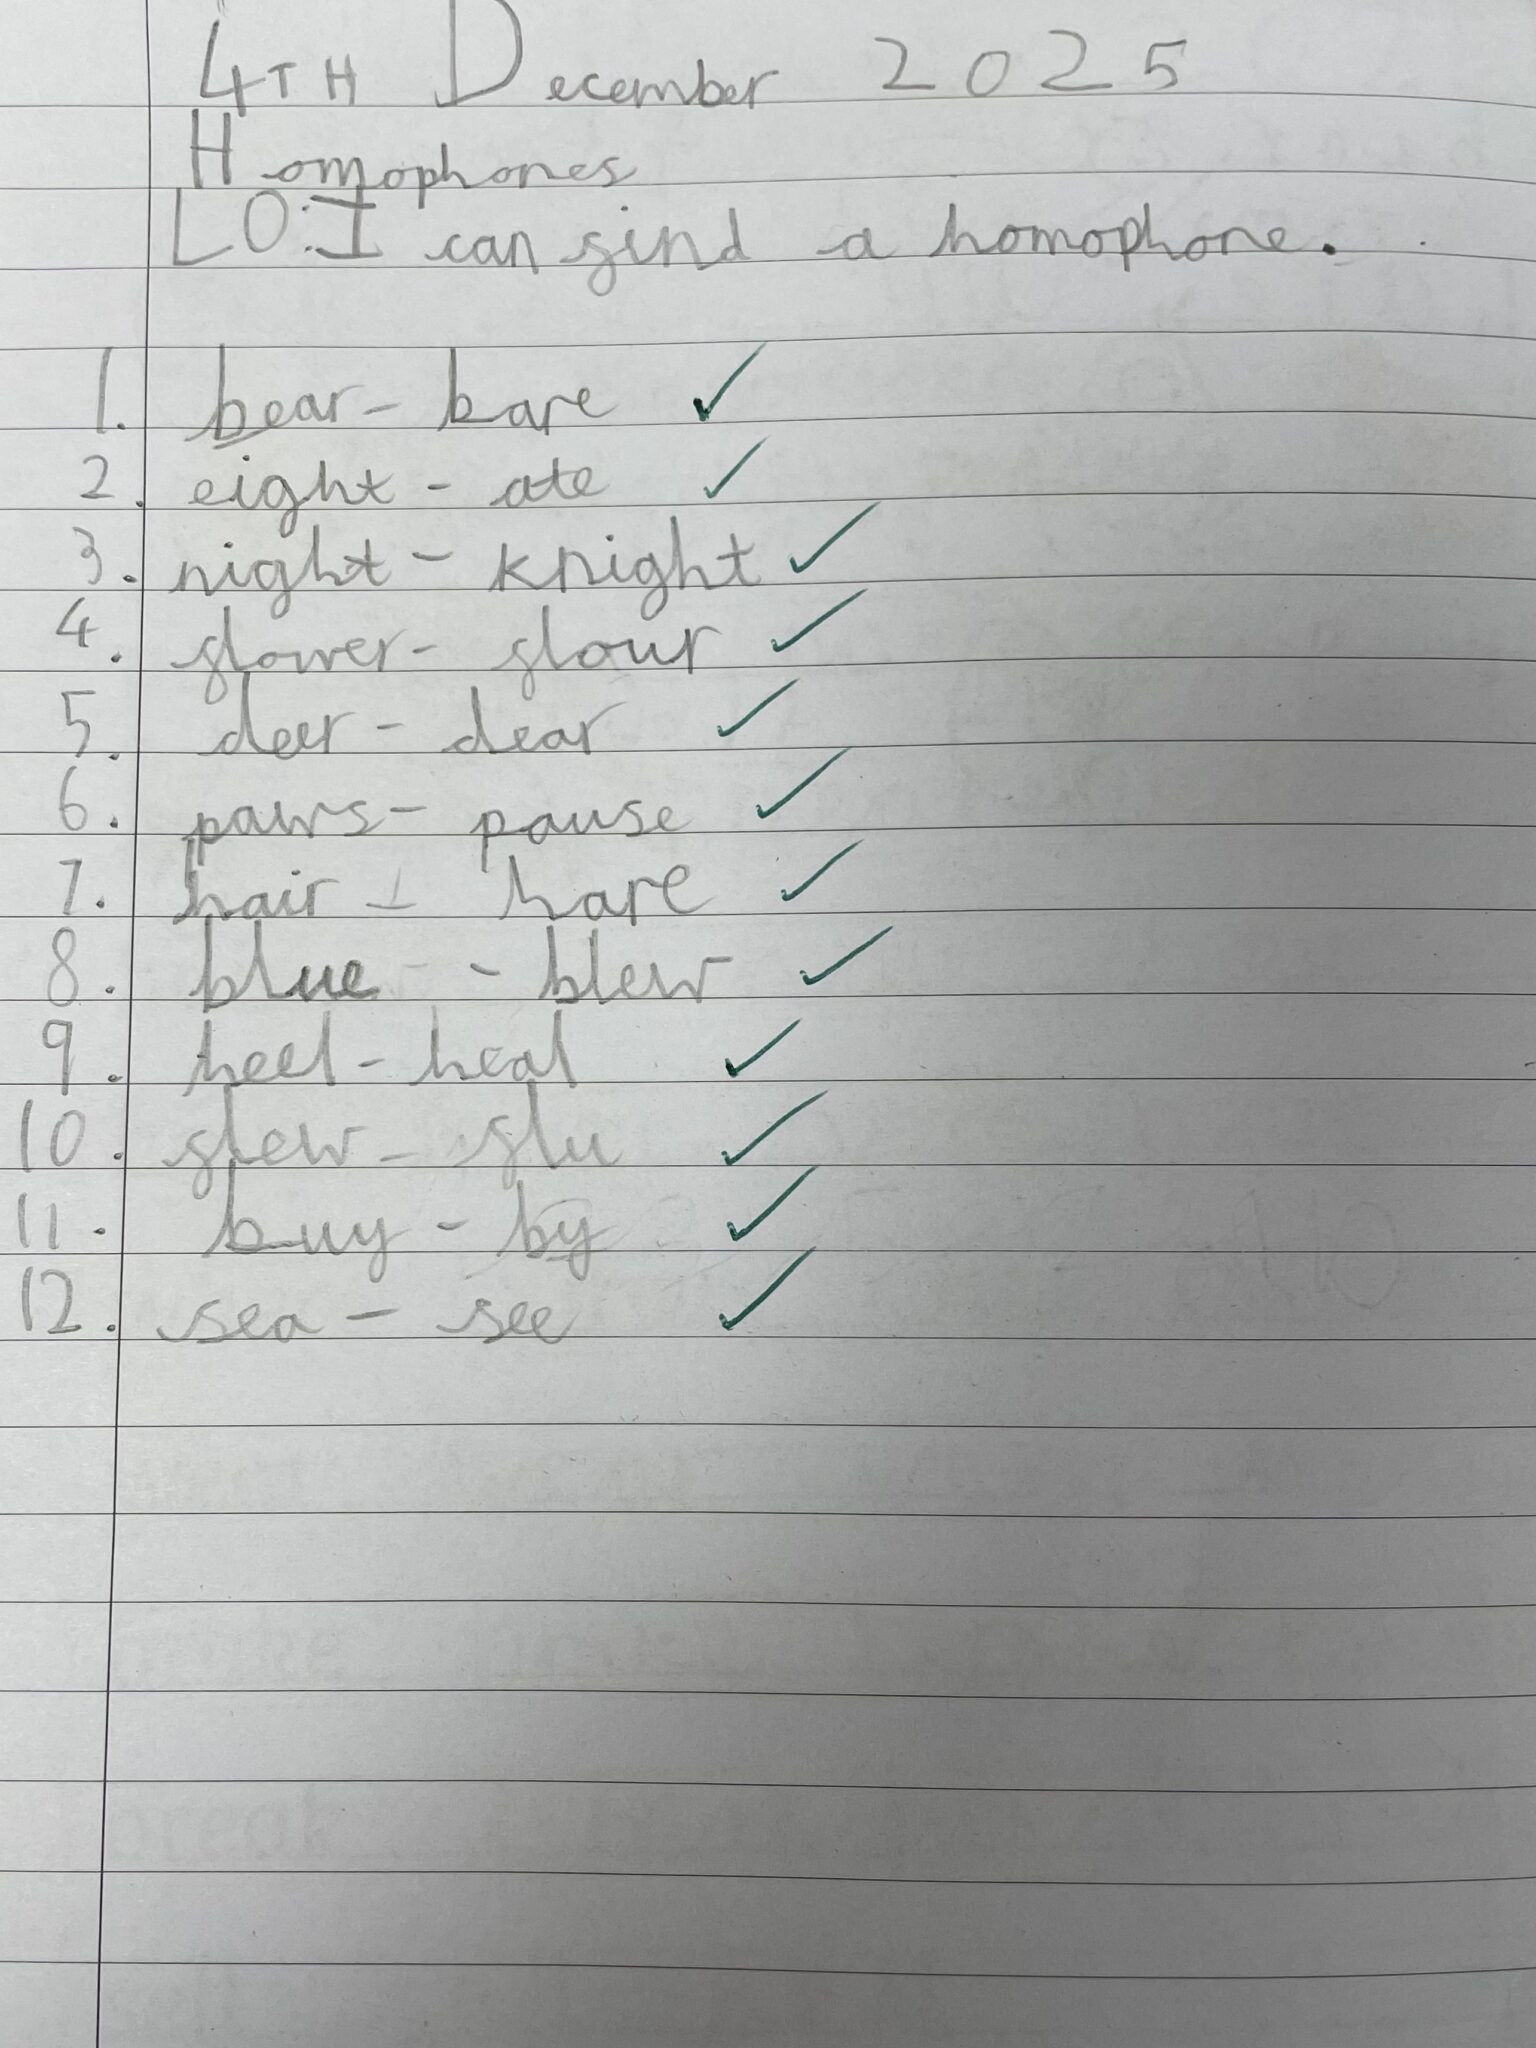 4TH December 2025
Homophones
LO: I can find a homophone.
1. bear - bare
2. eight - ate
3. night - knight
4. flower - flour
5. deer - dear
6. paws - pause
7. hair - hare
8. blue - blew
9. heel - heal
10. flew - flu
11. buy - by
12. sea - see